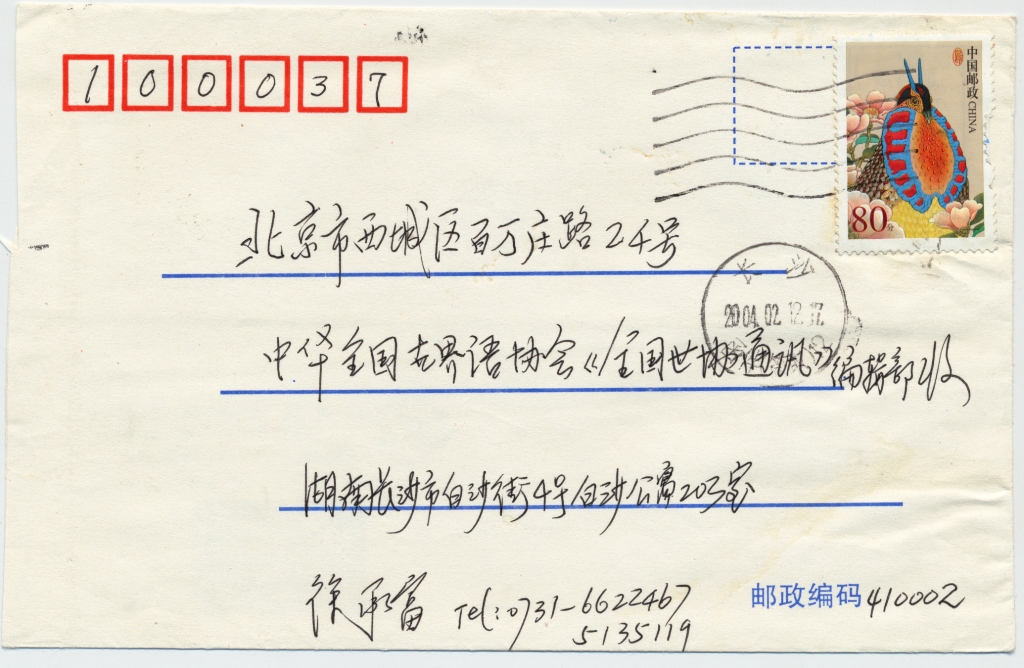 100037
中国邮政 CHINA
80分
北京市西城区百万庄路24号
长沙
2004.02.12.17
中华全国世界语协会《全国世协通讯》编辑部收
湖南长沙市白沙街4号白沙公寓203室
徐承富 Tel:0731-6622467
5135119
邮政编码 410002